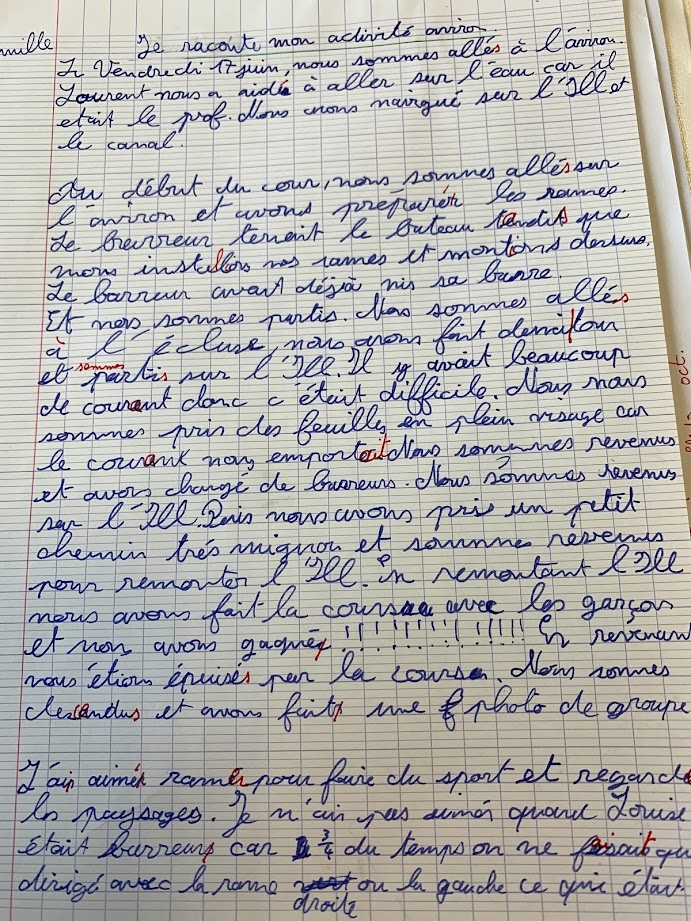 mille
Je raconte mon activité aviron
Vendredi 17 juin, nous sommes allés à l'aviron.
Laurent nous a aidé à aller sur l'eau car il
etait le prof. Nous avons navigué sur l'Ill et
le canal.
Au début du cour, nous sommes allés sur
l'aviron et avons préparér les rames.
Le barreur tenait le bateau tandis que
nous installions nos rames et montions dessus.
Le barreur avait déjà mis sa barre.
Et nous sommes partis. Nous sommes allés
à l'écluse, nous avons fait demi/tour
et sommes partis sur l'Ill. Il y avait beaucoup
de courant donc c'était difficile. Nous nous
sommes pris des feuilles en plein visage car
le courant nous emportait. Nous sommes revenus
et avons changé de barreurs. Nous sommes revenus
sur l'Ill. Puis nous avons pris un petit
chemin trés mignon et sommes revenus
pour remonter l'Ill. En remontant l'Ill
nous avons fait la course avec les garçons
et nous avons gagnés !!!!!!!!!!!!!!! En revenant
nous étions épuisés par la course. Nous sommes
descendus et avons faits une photo de groupe
J'ai aimér ramer pour faire du sport et regarde
les paysages. Je n'ai pas aimér quand Louise
était barreurs car 3/4 du temps on ne faisait qu
dirigé avec la rame ou la gauche ce qui était
droite
oct.